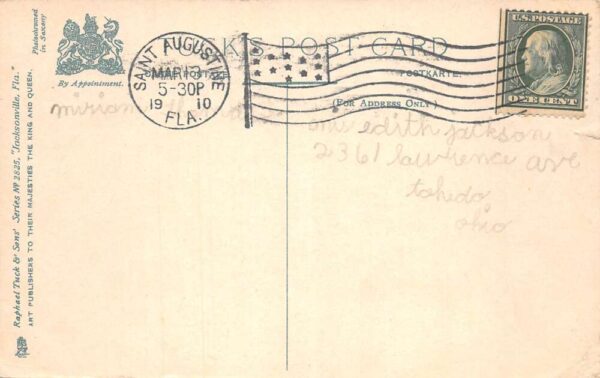 Photochromed
in Saxony
By Appointment.
Raphael Tuck & Sons' Series Nº 2825, "Jacksonville, Fla."
ART PUBLISHERS TO THEIR MAJESTIES THE KING AND QUEEN.
SAINT AUGUSTINE
MAR 13
5-30P
1910
FLA.
CK'S POST CARD
POSTKARTE.
(FOR ADDRESS ONLY)
U.S. POSTAGE
ONE CENT
miriam
edith jackson
2361 lawrence ave
toledo
ohio